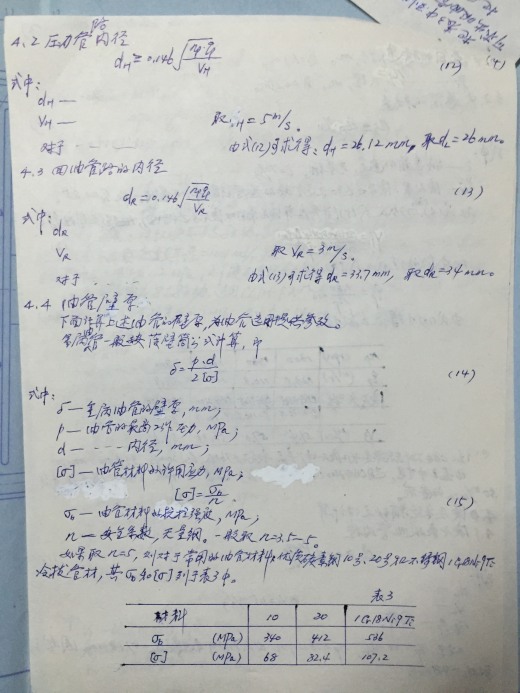 4.2 压力管路内径
dH ≥ 0.146 √(ηq/VH) (12)
式中:
dH —
VH — 取VH = 5m/s。
对于 由式(12)可求得: dH = 26.12mm, 取dL = 26mm。
4.3 回油管路的内径
dR = 0.146 √(ηq/VR) (13)
式中:
dR
VR 取VR = 3m/s。
对于 由式(13)可求得dR = 33.7mm, 取dR = 34mm。
4.4 油管壁厚
下面计算上述油管的壁厚, 为油管选用提供参考。
金属管一般按薄壁筒公式计算, 即
δ = p·d / 2[σ] (14)
式中:
δ — 金属油管的壁厚, mm;
p — 油管的最高工作压力, MPa;
d — --- 内径, mm;
[σ] — 油管材料的许用应力, MPa;
[σ] = σb/n (15)
σb — 油管材料的抗拉强度, MPa;
n — 安全系数, 无量纲。一般取n=3.5-5。
如果取n=5, 则对于常用的油管材料: 优质碳素钢10号、20号和不锈钢1Cr18Ni9Ti
冷拔管材, 其σb和[σ]列于表3中。
表3
材料 10 20 1Cr18Ni9Ti
σb (MPa) 340 412 536
[σ] (MPa) 68 82.4 107.2